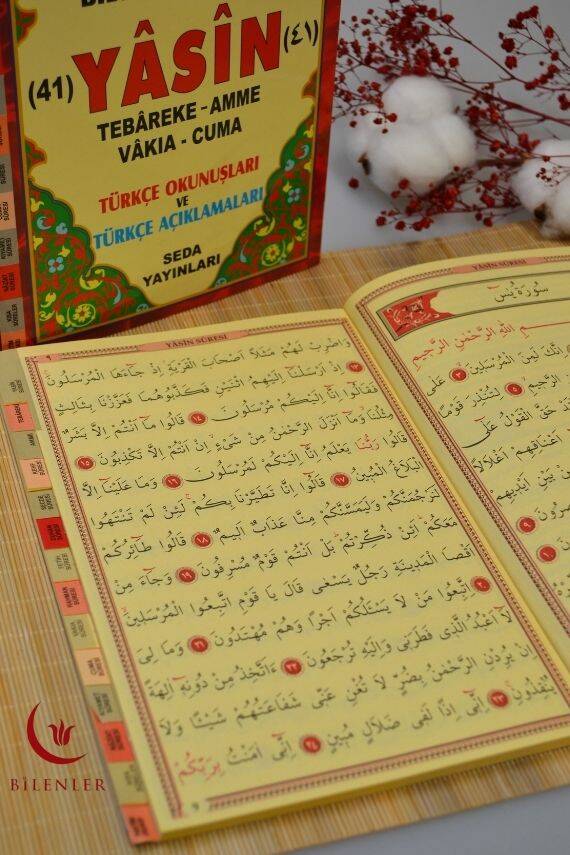 (41) YÂSÎN (٤١)
TEBÂREKE - AMME
VÂKIA - CUMA
TÜRKÇE OKUNUŞLARI
VE
TÜRKÇE AÇIKLAMALARI
SEDA
YAYINLARI
YÂSÎN SÛRESİ
٩
وَاضْرِبْ لَهُمْ مَثَلًا اَصْحَابَ الْقَرْيَةِ اِذْ جَاءَهَا الْمُرْسَلُونَ
١٣ اِذْ اَرْسَلْنَا اِلَيْهِمُ اثْنَيْنِ فَكَذَّبُوهُمَا فَعَزَّزْنَا بِثَالِثٍ
فَقَالُوا اِنَّا اِلَيْكُمْ مُرْسَلُونَ ١٤ قَالُوا مَا اَنْتُمْ اِلَّا بَشَرٌ
مِثْلُنَا وَمَا اَنْزَلَ الرَّحْمٰنُ مِنْ شَيْءٍ اِنْ اَنْتُمْ اِلَّا تَكْذِبُونَ ١٥
قَالُوا رَبُّنَا يَعْلَمُ اِنَّا اِلَيْكُمْ لَمُرْسَلُونَ ١٦ وَمَا عَلَيْنَا اِلَّا
الْبَلَاغُ الْمُبِينُ ١٧ قَالُوا اِنَّا تَطَيَّرْنَا بِكُمْ لَئِنْ لَمْ تَنْتَهُوا
لَنَرْجُمَنَّكُمْ وَلَيَمَسَّنَّكُمْ مِنَّا عَذَابٌ اَلِيمٌ ١٨ قَالُوا طَائِرُكُمْ
مَعَكُمْ اَئِنْ ذُكِّرْتُمْ بَلْ اَنْتُمْ قَوْمٌ مُسْرِفُونَ ١٩ وَجَاءَ مِنْ
اَقْصَا الْمَدِينَةِ رَجُلٌ يَسْعٰى قَالَ يَا قَوْمِ اتَّبِعُوا الْمُرْسَلِينَ
٢٠ اِتَّبِعُوا مَنْ لَا يَسْئَلُكُمْ اَجْرًا وَهُمْ مُهْتَدُونَ ٢١ وَمَا لِيَ
لَا اَعْبُدُ الَّذِي فَطَرَنِي وَاِلَيْهِ تُرْجَعُونَ ٢٢ ءَاَتَّخِذُ مِنْ دُونِهِ اٰلِهَةً
اِنْ يُرِدْنِ الرَّحْمٰنُ بِضُرٍّ لَا تُغْنِ عَنِّي شَفَاعَتُهُمْ شَيْئًا وَلَا
يُنْقِذُونِ ٢٣ اِنِّي اِذًا لَفِي ضَلَالٍ مُبِينٍ ٢٤ اِنِّي اٰمَنْتُ بِرَبِّكُمْ
YÂSÎN SÛRESİ
سُورَةُ يٰسٓ
اللّٰهِ الرَّحْمٰنِ الرَّحِيمِ
اِنَّكَ لَمِنَ الْمُرْسَلِينَ ٣ عَلٰى
الرَّحِيمِ ٥ لِتُنْذِرَ قَوْمًا
حَقَّ الْقَوْلُ عَلٰى
اَعْنَاقِهِمْ اَغْلَالًا
بَيْنِ اَيْدِيهِمْ
٩
١٠
BİLENLER